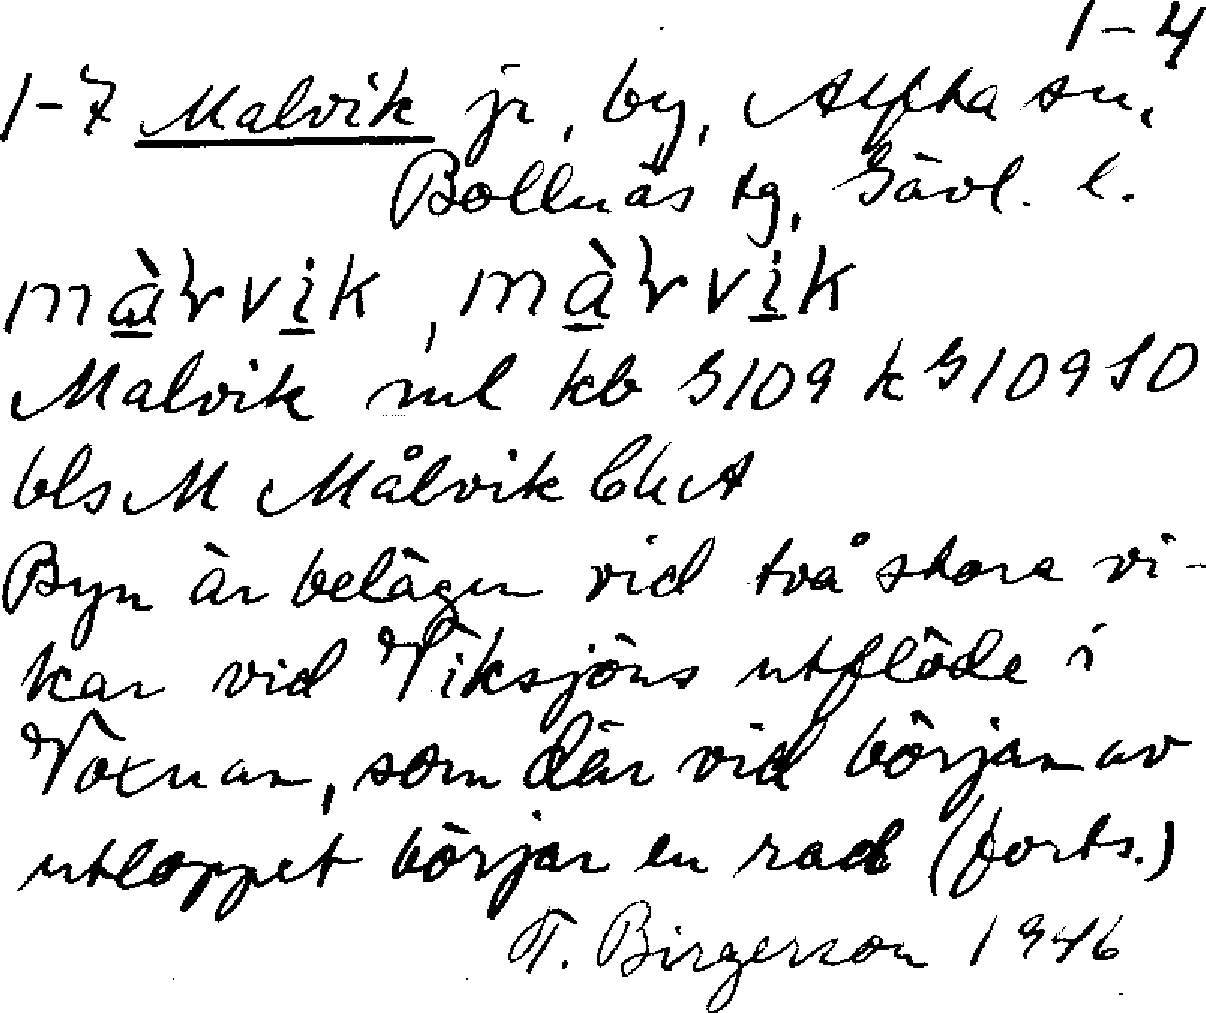 1-4
1-7 Malvik jr, by, Alfta sn,
Bollnäs tg, Gävl. l.
Malvik ml kb G109 k G109 SO
bls M Målvik
Byn är belägen vid två stora vi-
kar vid Viksjöns utflöde i
Voxnan, som där vid början av
utloppet börjar en rad (forts.)
T. Birgerson 1946